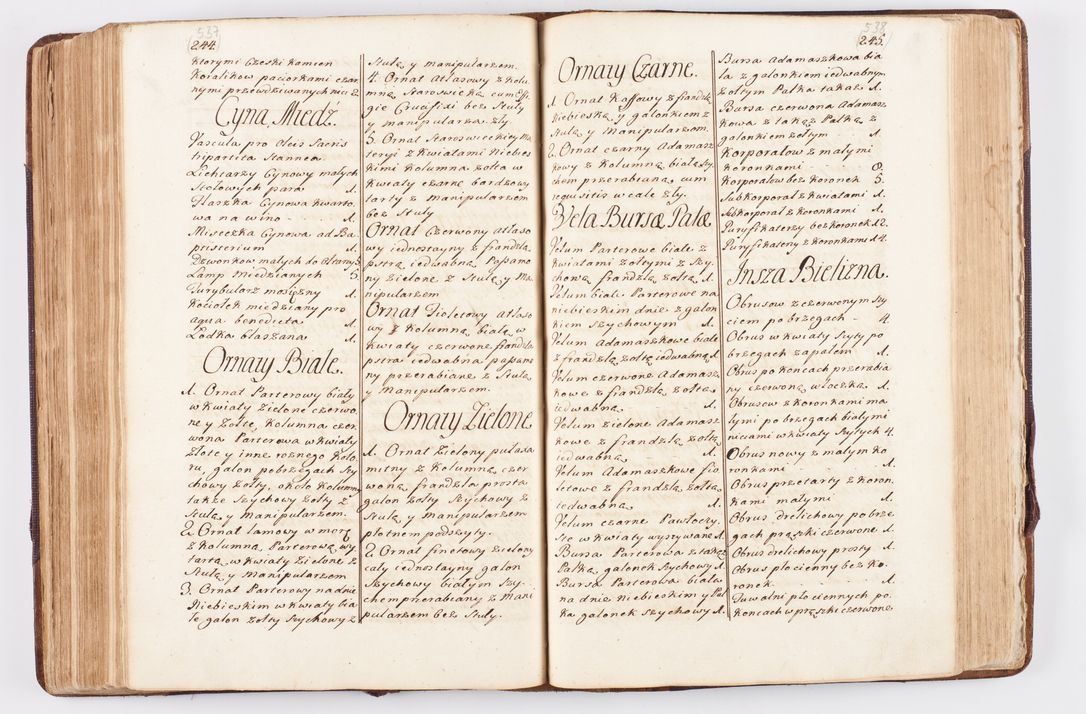 537
244.
ktorymi Czeski kamien
Koralikow paciorkami czar
nymi przewdziewanych nici 2.
Cyna, Miedź.
Vascula pro Oleis Sacris
tripartita Stannea
Lichtarzy Cynowy małych
Stołowych para 1.
Flaszka Cynowa kwarto
wa na wino 1.
Miseczka Cynowa ad Ba
ptisterium 1.
Dzwonkow małych do Ołtarzy 3.
Lamp Miedzianych 5.
Turybularz mosiężny 1.
Kociołek miedziany pro
aqua benedicta 1.
Łodka blaszana 1.
Ornaty Białe.
1. Ornat Parterowy biały
w kwiaty Zielone czerwo
ne y żołte, Kolumna czer
wona Parterowa w kwiaty
złote y inne rożnego kolo
ru, galon po brzegach Szy
chowy żołty, około Kolumny
także Szychowy żołty z
Stułą y Manipularzem.
2. Ornat lamowy w morę
z Kolumną Parterową wy
tartą w kwiaty Zielone z
Stułą y Manipularzem
3. Ornat Parterowy na dnie
Niebieskim w kwiaty bia
łe galon żołty Szychowy z
Stułą y manipularzem.
4. Ornat Atłasowy z kolu
mną Staroswiecką cum Effi
gie Crucifixi bez Stuły
y manipularza zły
5. Ornat Staroswieckiey Ma
teryi z kwiatami Niebies
kimi Kolumna żołta w
kwiaty czarne bardzo wy
tarty z Manipularzem
bez Stuły
Ornat Czerwony atłaso
wy iednostayny z frandzlą
pstrą iedwabną, Passamo
ny Zielone z Stułą y Ma
nipularzem
Ornat Fioletowy atłaso
wy z Kolumną białą w
kwiaty czerwone frandzla
pstra iedwabna passamo
ny przerabiane z Stułą
y Manipularzem.
Ornaty Zielone.
1. Ornat Zielony pułaxa
mitny z Kolumną czer
woną frandzla prosta
galon żołty Szychowy z
Stułą y manipularzem
płotnem podszyty.
2. Ornat finetowy zielony
cały iednostayny galon
Szychowy białym Szy
chem przerabiany z Mani
pularzem bez Stuły.
538
245.
Ornaty Czarne.
1. Ornat Koffowy z frandzlą
Niebieską y galonkiem z
Stułą y Manipularzem.
2. Ornat czarny Adamasz
kowy z Kolumną białą Szy
chem przerabianą, cum
requisitis w cale zły.
Vela Bursæ Palæ
Velum Parterowe białe z
kwiatami żołtymi z Szy
chową frandzlą żołtą 1.
Velum białe Parterowe na
niebieskim dnie z galon
kiem Szychowym 1.
Velum Adamaszkowe białe
z frandzlą żołtą iedwabną 1.
Velum czerwone Adamasz
kowe z frandzlą żołtą
iedwabną 1.
Velum zielone Adamasz
kowe z frandzlą żołtą
iedwabną 1.
Velum Adamaszkowe fio
letowe z frandzlą żołtą
iedwabną 1.
Velum czarne Pawłoczy
ste w kwiaty wyszywane 1.
Bursa Parterowa z takąż
Palką, galonek Szychowy 1.
Bursa Parterowa biała
na dnie niebieskim y Pal
ka galonek Szychowy 1.
Bursa Adamaszkowa bia
ła z galonkiem iedwabnym
żołtym Palka takaż 1.
Bursa czerwona Adamasz
kowa z takąż Palką z
galonkiem żołtym 1.
Korporałow z małymi
koronkami 8.
Korporałow bez koronek 5.
Subkorporał z kwiatami 1.
Subkorporał z koronkami 1.
Puryfikaterzy bez koronek 12.
Puryfikaterzy z koronkami 14.
Insza Bielizna.
Obrusow z czerwonym Szy
ciem po brzegach 4.
Obrus w kwiaty Szyty po
brzegach zapałem 1.
Obrus po koncach przerabia
ny czerwoną włoczką 1.
Obrusow z koronkami ma
łymi po brzegach białymi
nicami w kwiaty Szytych 4.
Obrus nowy z małym ko
ronkami 1.
Obrus przetarty z koron
kami małymi 1.
Obrus drelichowy po brze
gach prążki czerwone 1.
Obrus drelichowy prosty 1.
Obrus płocienny bez ko
ronek 1.
Tuwalni płociennych po
koncach w prążki czerwone